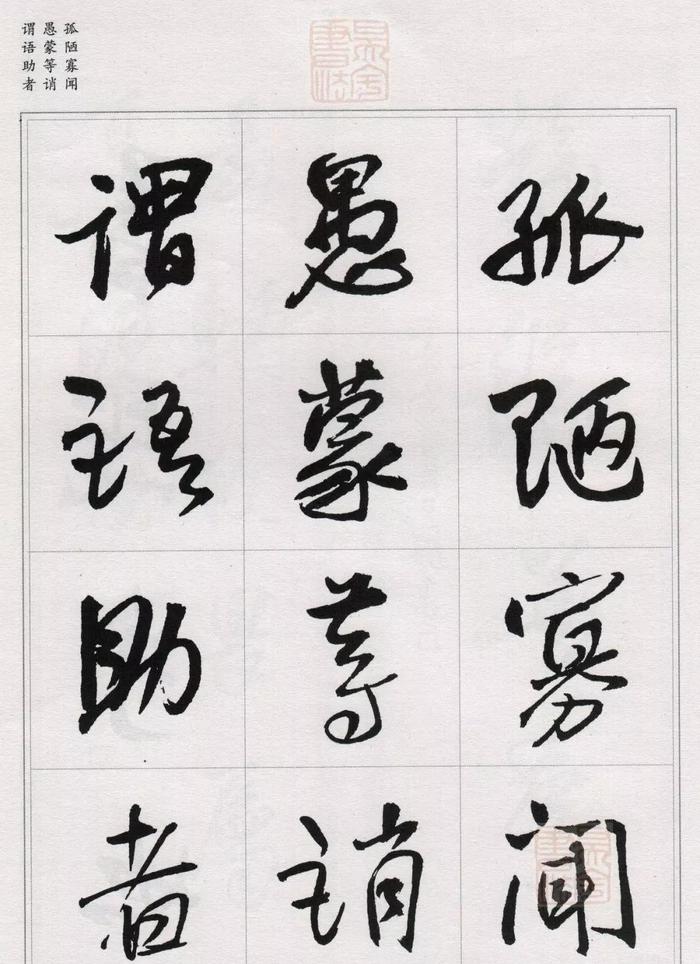 孤陋寡闻
愚蒙等诮
谓语助者
孤陋寡闻
愚蒙等诮
谓语助者